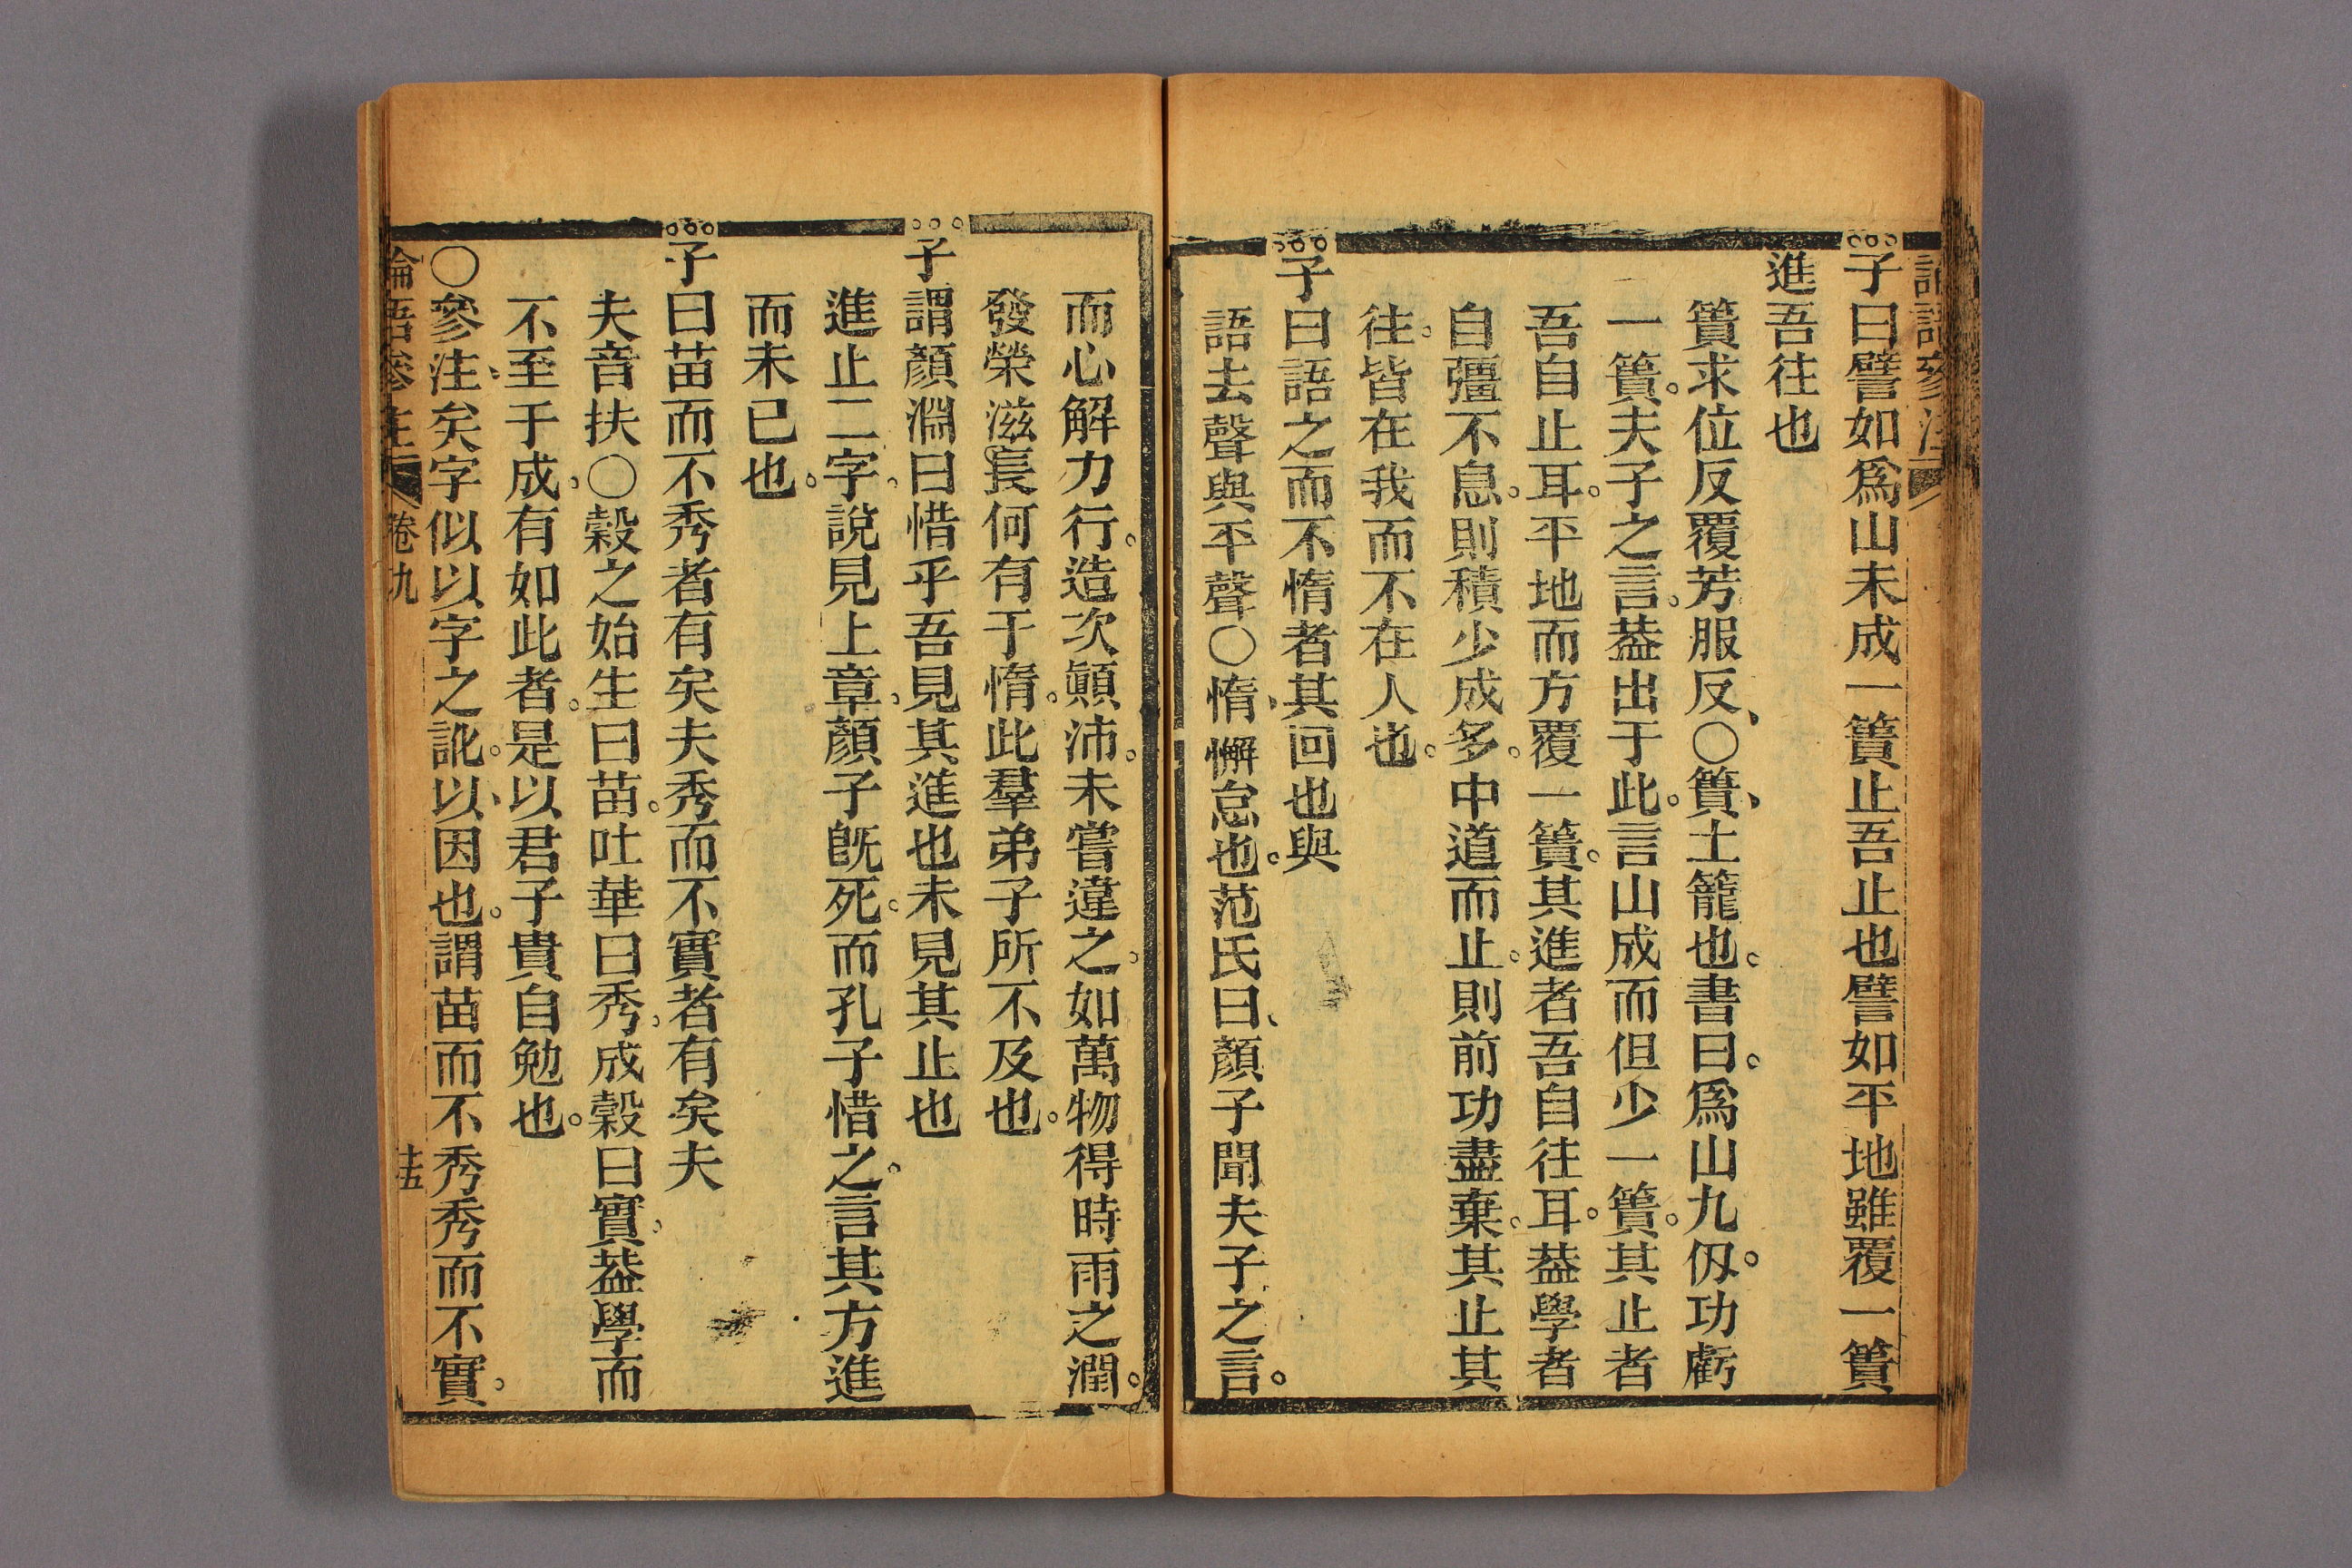 語語參注
子曰譬如爲山未成一簣止吾止也譬如平地雖覆一簣
進吾往也
簣求位反覆芳服反〇簣土籠也書曰爲山九仭功虧
一簣夫子之言葢出于此言山成而但少一簣其止者
吾自止耳平地而方覆一簣其進者吾自往耳葢學者
自彊不息則積少成多中道而止則前功盡棄其止其
往皆在我而不在人也
子曰語之而不惰者其回也與
語去聲與平聲〇惰懈怠也范氏曰顏子聞夫子之言
而心解力行造次顚沛未嘗違之如萬物得時雨之潤
發榮滋長何有于惰此羣弟子所不及也
子謂顏淵曰惜乎吾見其進也未見其止也
進止二字說見上章顏子旣死而孔子惜之言其方進
而未已也
子曰苗而不秀者有矣夫秀而不實者有矣夫
夫音扶〇穀之始生曰苗吐華曰秀成穀曰實葢學而
不至于成有如此者是以君子貴自勉也
〇參注矣字似以字之訛以因也謂苗而不秀秀而不實
論語參注 卷九 十五